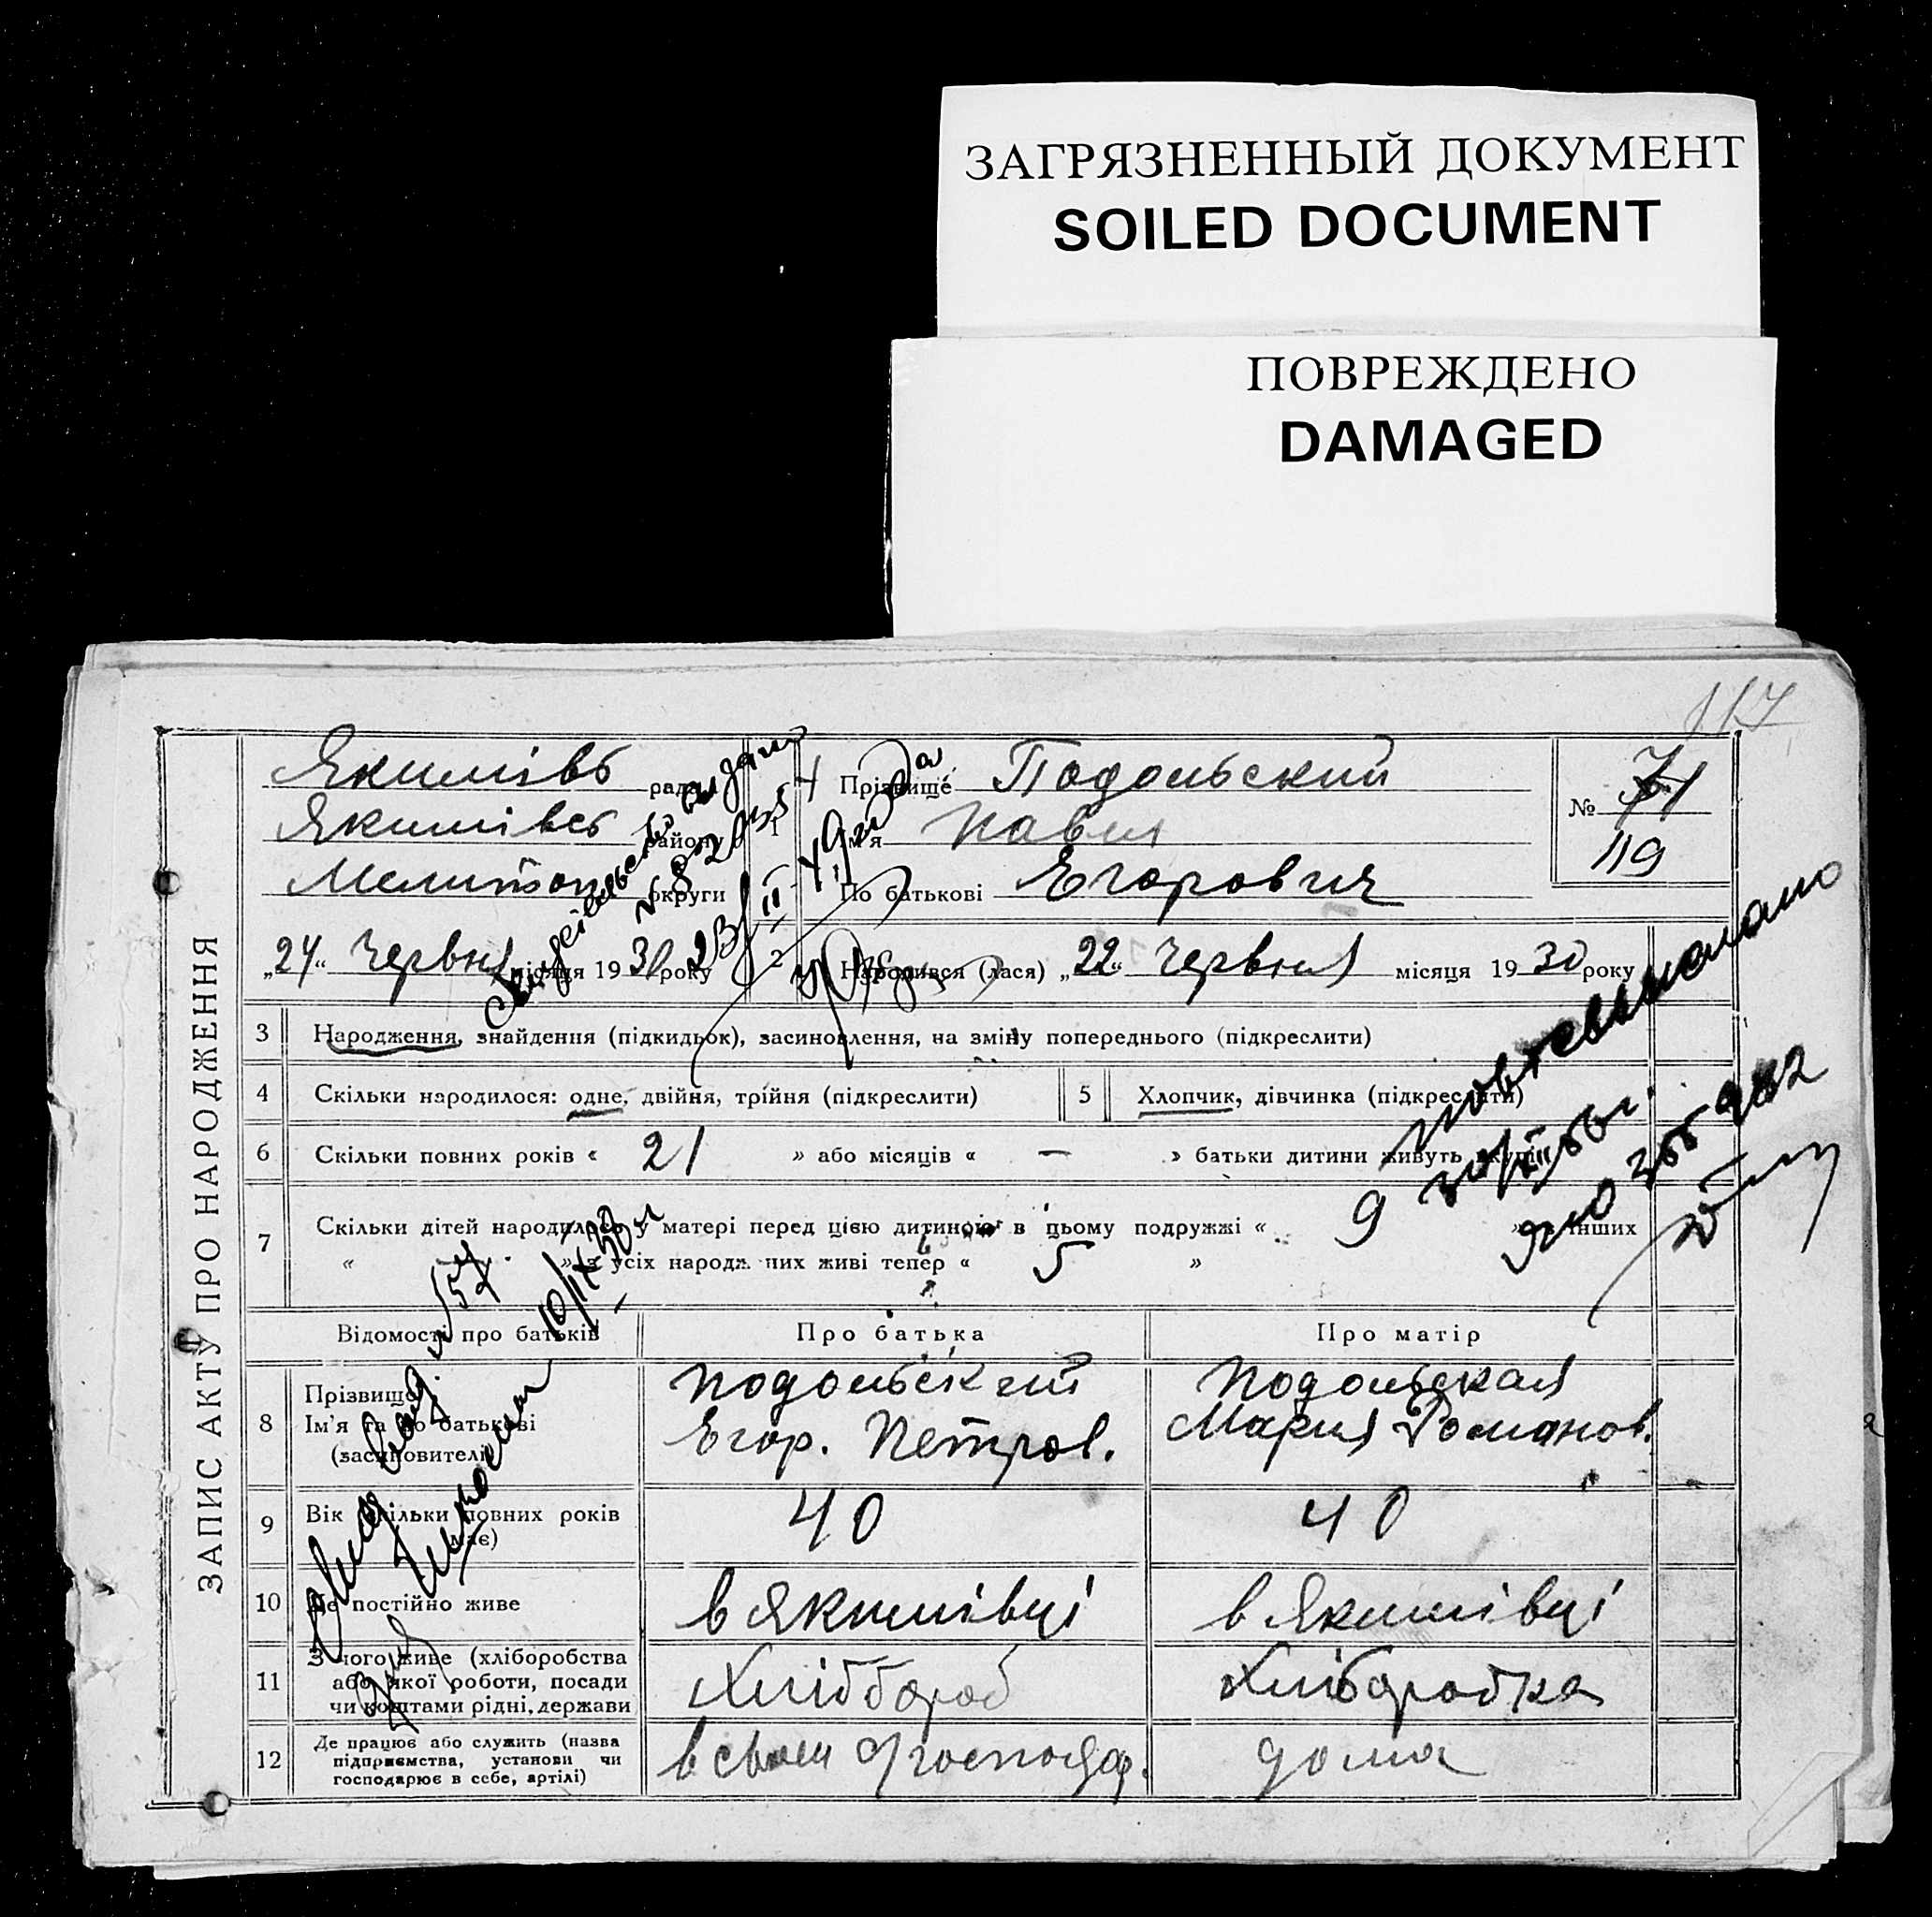 ЗАГРЯЗНЕННЫЙ ДОКУМЕНТ
SOILED DOCUMENT
ПОВРЕЖДЕНО
DAMAGED
117
ЗАПИС АКТУ ПРО НАРОДЖЕННЯ
Якимівс рада
Якимівсь району
Мелитоп округи
1 Прізвище Подольский
Ім'я Павел
По батькові Егорович
№ 71
119
„24“ Червня місяця 1930 року
2 Народився (лася) „22“ Червня місяця 1930 року
3 Народження, знайдення (підкидьок), засиновлення, на зміну попереднього (підкреслити)
4 Скільки народилося: одне, двійня, трійня (підкреслити)
5 Хлопчик, дівчинка (підкреслити)
6 Скільки повних років « 21 » або місяців « — » батьки дитини живуть вкупі
7 Скільки дітей народилось у матері перед цією дитиною в цьому подружжі « 9 » інших
« » з усіх народж них живі тепер « 5 »
Відомості про батьків
Про батька
Про матір
8 Прізвище
Ім'я та по батькові
(засновителів)
Подольский
Егор. Петров.
Подольская
Мария Романов.
9 Вік скільки повних років має)
40
40
10 Де постійно живе
в Якимівці
в Якимівці
11 З чого живе (хліборобства
або якої роботи, посади
чи коштами рідні, держави
Хлібороб
Хліборобка
12 Де працює або служить (назва
підприємства, установи чи
господарює в себе, артілі)
в своем господар.
дома